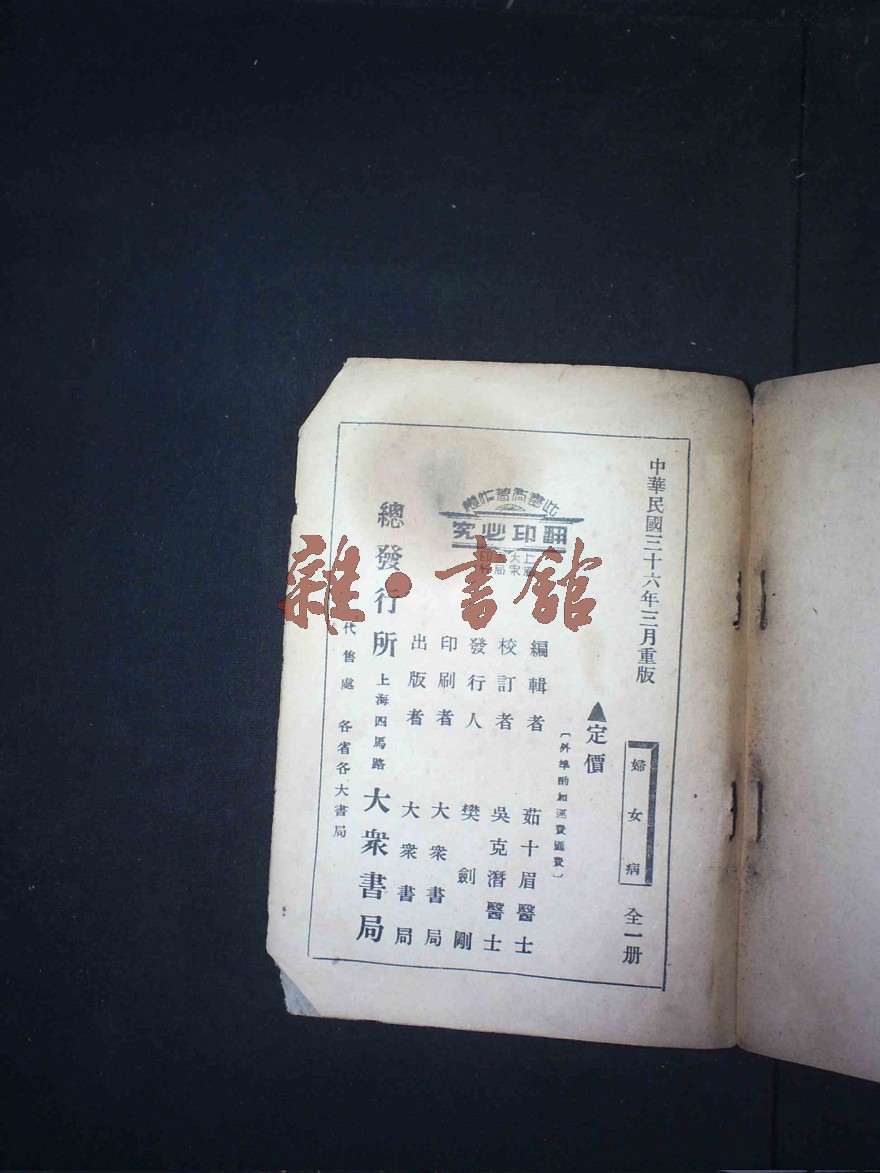 中華民國三十六年三月重版
婦女病
全一册
▲定價
〔外埠酌加運費匯費〕
編輯者 茹十眉醫士
校訂者 吳克潛醫士
發行人 樊劍剛
印刷者 大衆書局
出版者 大衆書局
總發行所 上海四馬路 大衆書局
代售處 各省各大書局
此書有著作權
翻印必究
雜·書館